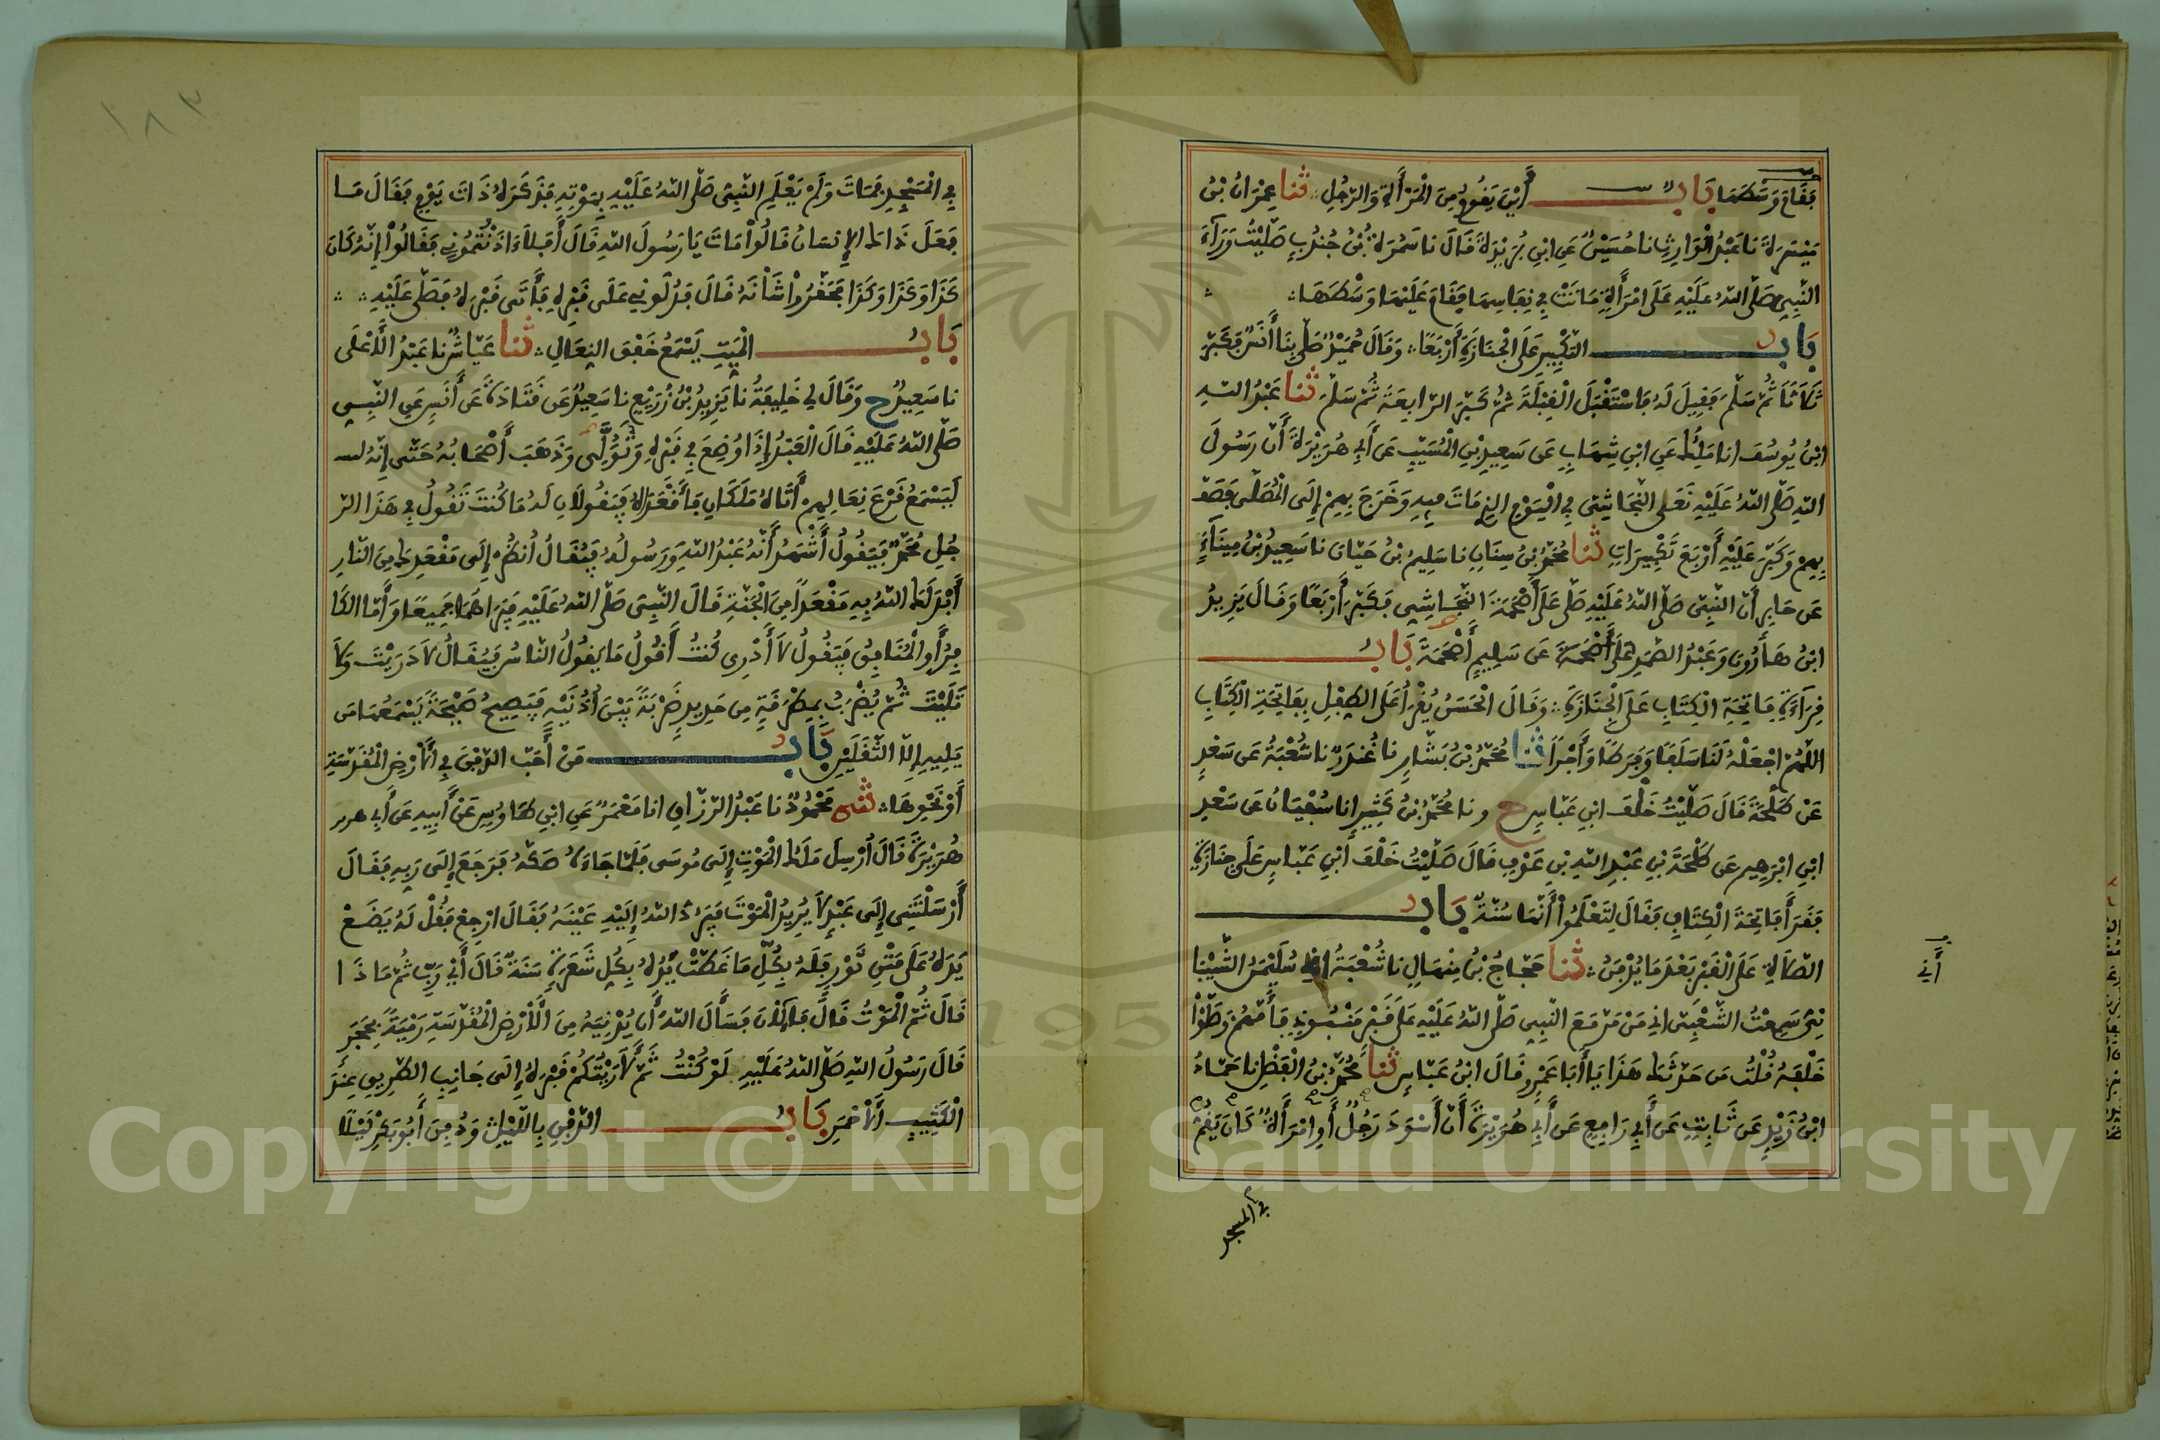 فَقَامَ وَسْطَهَا بَابٌ أَيْنَ يَقُومُ مِنَ الْمَرْأَةِ وَالرَّجُلِ ثنا عِمْرَانُ بْنُ
مَيْسَرَةَ نا عَبْدُ الْوَارِثِ نا حُسَيْنٌ عَنِ ابْنِ بُرَيْدَةَ قَالَ نا سَمُرَةُ بْنُ جُنْدُبٍ صَلَّيْتُ وَرَآءَ
النَّبِيِّ صَلَّى اللهُ عَلَيْهِ عَلَى امْرَأَةٍ مَاتَتْ فِي نِفَاسِهَا فَقَامَ عَلَيْهَا وَسْطَهَا
بَابُ التَّكْبِيرِ عَلَى الْجَنَازَةِ أَرْبَعًا وَقَالَ حُمَيْدٌ صَلَّى بِنَا أَنَسٌ فَكَبَّرَ
ثَلَاثًا ثُمَّ سَلَّمَ فَقِيلَ لَهُ فَاسْتَقْبَلَ الْقِبْلَةَ ثُمَّ كَبَّرَ الرَّابِعَةَ ثُمَّ سَلَّمَ ثنا عَبْدُ اللهِ
ابْنُ يُوسُفَ انا مَالِكٌ عَنِ ابْنِ شِهَابٍ عَنْ سَعِيدِ بْنِ الْمُسَيَّبِ عَنْ أَبِي هُرَيْرَةَ أَنَّ رَسُولَ
اللهِ صَلَّى اللهُ عَلَيْهِ نَعَى النَّجَاشِيَّ فِي الْيَوْمِ الذِي مَاتَ فِيهِ وَخَرَجَ بِهِمْ إِلَى الْمُصَلَّى فَصَفَّ
بِهِمْ وَكَبَّرَ عَلَيْهِ أَرْبَعَ تَكْبِيرَاتٍ ثنا مُحَمَّدُ بْنُ سِنَانٍ نا سَلِيمُ بْنُ حَيَّانَ نا سَعِيدُ بْنُ مِينَآءَ
عَنْ جَابِرٍ أَنَّ النَّبِيَّ صَلَّى اللهُ عَلَيْهِ صَلَّى عَلَى أَصْحَمَةَ النَّجَاشِيِّ فَكَبَّرَ أَرْبَعًا وَقَالَ يَزِيدُ
ابْنُ هَارُونَ وَعَبْدُ الصَّمَدِ عَلَى أَصْحَمَةَ عَنْ سَلِيمٍ أَصْحَمَةَ بَابُ
قِرَآءَةِ فَاتِحَةِ الْكِتَابِ عَلَى الْجَنَازَةِ وَقَالَ الْحَسَنُ يُقْرَأُ عَلَى الطِّفْلِ بِفَاتِحَةِ الْكِتَابِ
اللَّهُمَّ اجْعَلْهُ لَنَا سَلَفًا وَفَرَطًا وَأَجْرًا ثنا مُحَمَّدُ بْنُ بَشَّارٍ نا غُنْدَرٌ نا شُعْبَةُ عَنْ سَعْدٍ
عَنْ طَلْحَةَ قَالَ صَلَّيْتُ خَلْفَ ابْنِ عَبَّاسٍ ح ونا مُحَمَّدُ بْنُ كَثِيرٍ انا سُفْيَانُ عَنْ سَعْدِ
ابْنِ ابْرَهِيمَ عَنْ طَلْحَةَ بْنِ عَبْدِ اللهِ بْنِ عَوْفٍ قَالَ صَلَّيْتُ خَلْفَ ابْنِ عَبَّاسٍ عَلَى جَنَازَةٍ
فَقَرَأَ فَاتِحَةَ الْكِتَابِ فَقَالَ لِتَعْلَمُوا أَنَّهَا سُنَّةٌ بَابُ
الصَّلَاةِ عَلَى الْقَبْرِ بَعْدَ مَا يُدْفَنُ ثنا حَجَّاجُ بْنُ مِنْهَالٍ نا شُعْبَةُ سُلَيْمَنُ الشَّيْبَا
أَنِي
نِيُّ سَمِعْتُ الشَّعْبِيَّ اني مَنْ مَرَّ مَعَ النَّبِيِّ صَلَّى اللهُ عَلَيْهِ عَلَى قَبْرٍ مَنْبُوذٍ فَأَمَّهُمْ وَصَلَّوْا
خَلْفَهُ قُلْتُ مَنْ حَدَّثَكَ هَذَا يَا أَبَا عَمْرٍو قَالَ ابْنُ عَبَّاسٍ ثنا مُحَمَّدُ بْنُ الْفَضْلِ نا حَمَّادُ
ابْنُ زَيْدٍ عَنْ ثَابِتٍ عَنْ أَبِي رَافِعٍ عَنْ أَبِي هُرَيْرَةَ أَنَّ أَسْوَدَ رَجُلٌ أَوِ امْرَأَةٌ كَانَ يَقُمُّ
في المسجد
١٨٣
فِي الْمَسْجِدِ فَمَاتَ وَلَمْ يَعْلَمِ النَّبِيُّ صَلَّى اللهُ عَلَيْهِ بِمَوْتِهِ فَذَكَرَهُ ذَاتَ يَوْمٍ فَقَالَ مَا
فَعَلَ ذَاكَ الإِنسَانُ قَالُواْ مَاتَ يَا رَسُولَ اللهِ قَالَ أَفَلَا ءَاذَنْتُمُونِي فَقَالُواْ إِنَّهُ كَانَ
كَذَا وَكَذَا وَكَذَا فَحَقَرُواْ شَأْنَهُ قَالَ فَدُلُّونِي عَلَى قَبْرِهِ فَأَتَى قَبْرَهُ فَصَلَّى عَلَيْهِ
بَابُ الْمَيِّتِ يَسْمَعُ خَفْقَ النِّعَالِ ثنا عَيَّاشٌ نا عَبْدُ الْأَعْلَى
نا سَعِيدٌ ح وَقَالَ لِي خَلِيفَةُ نا يَزِيدُ بْنُ زُرَيْعٍ نا سَعِيدٌ عَنْ قَتَادَةَ عَنْ أَنَسٍ عَنِ النَّبِيِّ
صَلَّى اللهُ عَلَيْهِ قَالَ الْعَبْدُ إِذَا وُضِعَ فِي قَبْرِهِ وَتُوُلِّيَ وَذَهَبَ أَصْحَابُهُ حَتَّى إِنَّهُ
لَيَسْمَعُ قَرْعَ نِعَالِهِمْ أَتَاهُ مَلَكَانِ فَأَقْعَدَاهُ فَيَقُولَانِ لَهُ مَا كُنْتَ تَقُولُ فِي هَذَا الرَّ
جُلِ مُحَمَّدٍ فَيَقُولُ أَشْهَدُ أَنَّهُ عَبْدُ اللهِ وَرَسُولُهُ فَيُقَالُ أُنظُرْ إِلَى مَقْعَدِكَ مِنَ النَّارِ
أَبْدَلَكَ اللهُ بِهِ مَقْعَدًا مِنَ الْجَنَّةِ قَالَ النَّبِيُّ صَلَّى اللهُ عَلَيْهِ فَيَرَاهُمَا جَمِيعًا وَأَمَّا الْكَا
فِرُ أَوِ الْمُنَافِقُ فَيَقُولُ لَا أَدْرِي كُنْتُ أَقُولُ مَا يَقُولُ النَّاسُ فَيُقَالُ لَا دَرَيْتَ وَلَا
تَلَيْتَ ثُمَّ يُضْرَبُ بِمِطْرَقَةٍ مِنْ حَدِيدٍ ضَرْبَةً بَيْنَ أُذُنَيْهِ فَيَصِيحُ صَيْحَةً يَسْمَعُهَا مَن
يَلِيهِ إِلَّا الثَّقَلَيْنِ بَابُ مَنْ أَحَبَّ الدَّفْنَ فِي الْأَرْضِ الْمُقَدَّسَةِ
أَوْ نَحْوِهَا ثني مَحْمُودٌ نا عَبْدُ الرَّزَّاقِ انا مَعْمَرٌ عَنِ ابْنِ طَاوُسٍ عَنْ أَبِيهِ عَنْ أَبِي هرير
هُرَيْرَةَ قَالَ أُرْسِلَ مَلَكُ الْمَوْتِ إِلَى مُوسَى فَلَمَّا جَاءَهُ صَكَّهُ فَرَجَعَ إِلَى رَبِّهِ فَقَالَ
أَرْسَلْتَنِي إِلَى عَبْدٍ لَا يُرِيدُ الْمَوْتَ فَيَرُدُّ اللهُ إِلَيْهِ عَيْنَهُ فَقَالَ ارْجِعْ فَقُلْ لَهُ يَضَعْ
يَدَهُ عَلَى مَتْنِ ثَوْرٍ فَلَهُ بِكُلِّ مَا غَطَّتْ يَدُهُ بِكُلِّ شَعَرَةٍ سَنَةٌ قَالَ أَيْ رَبِّ ثُمَّ مَاذَا
قَالَ ثُمَّ الْمَوْتُ قَالَ فَالْآنَ فَسَأَلَ اللهَ أَن يُدْنِيَهُ مِنَ الْأَرْضِ الْمُقَدَّسَةِ رَمْيَةً بِحَجَرٍ
قَالَ رَسُولُ اللهِ صَلَّى اللهُ عَلَيْهِ لَوْ كُنْتُ ثَمَّ لَأَرَيْتُكُمْ قَبْرَهُ إِلَى جَانِبِ الطَّرِيقِ عِنْدَ
الْكَثِيبِ الْأَحْمَرِ بَابُ الدَّفْنِ بِاللَّيْلِ وَدُفِنَ أَبُو بَكْرٍ لَيْلًا
Copyright © King Saud University
1957